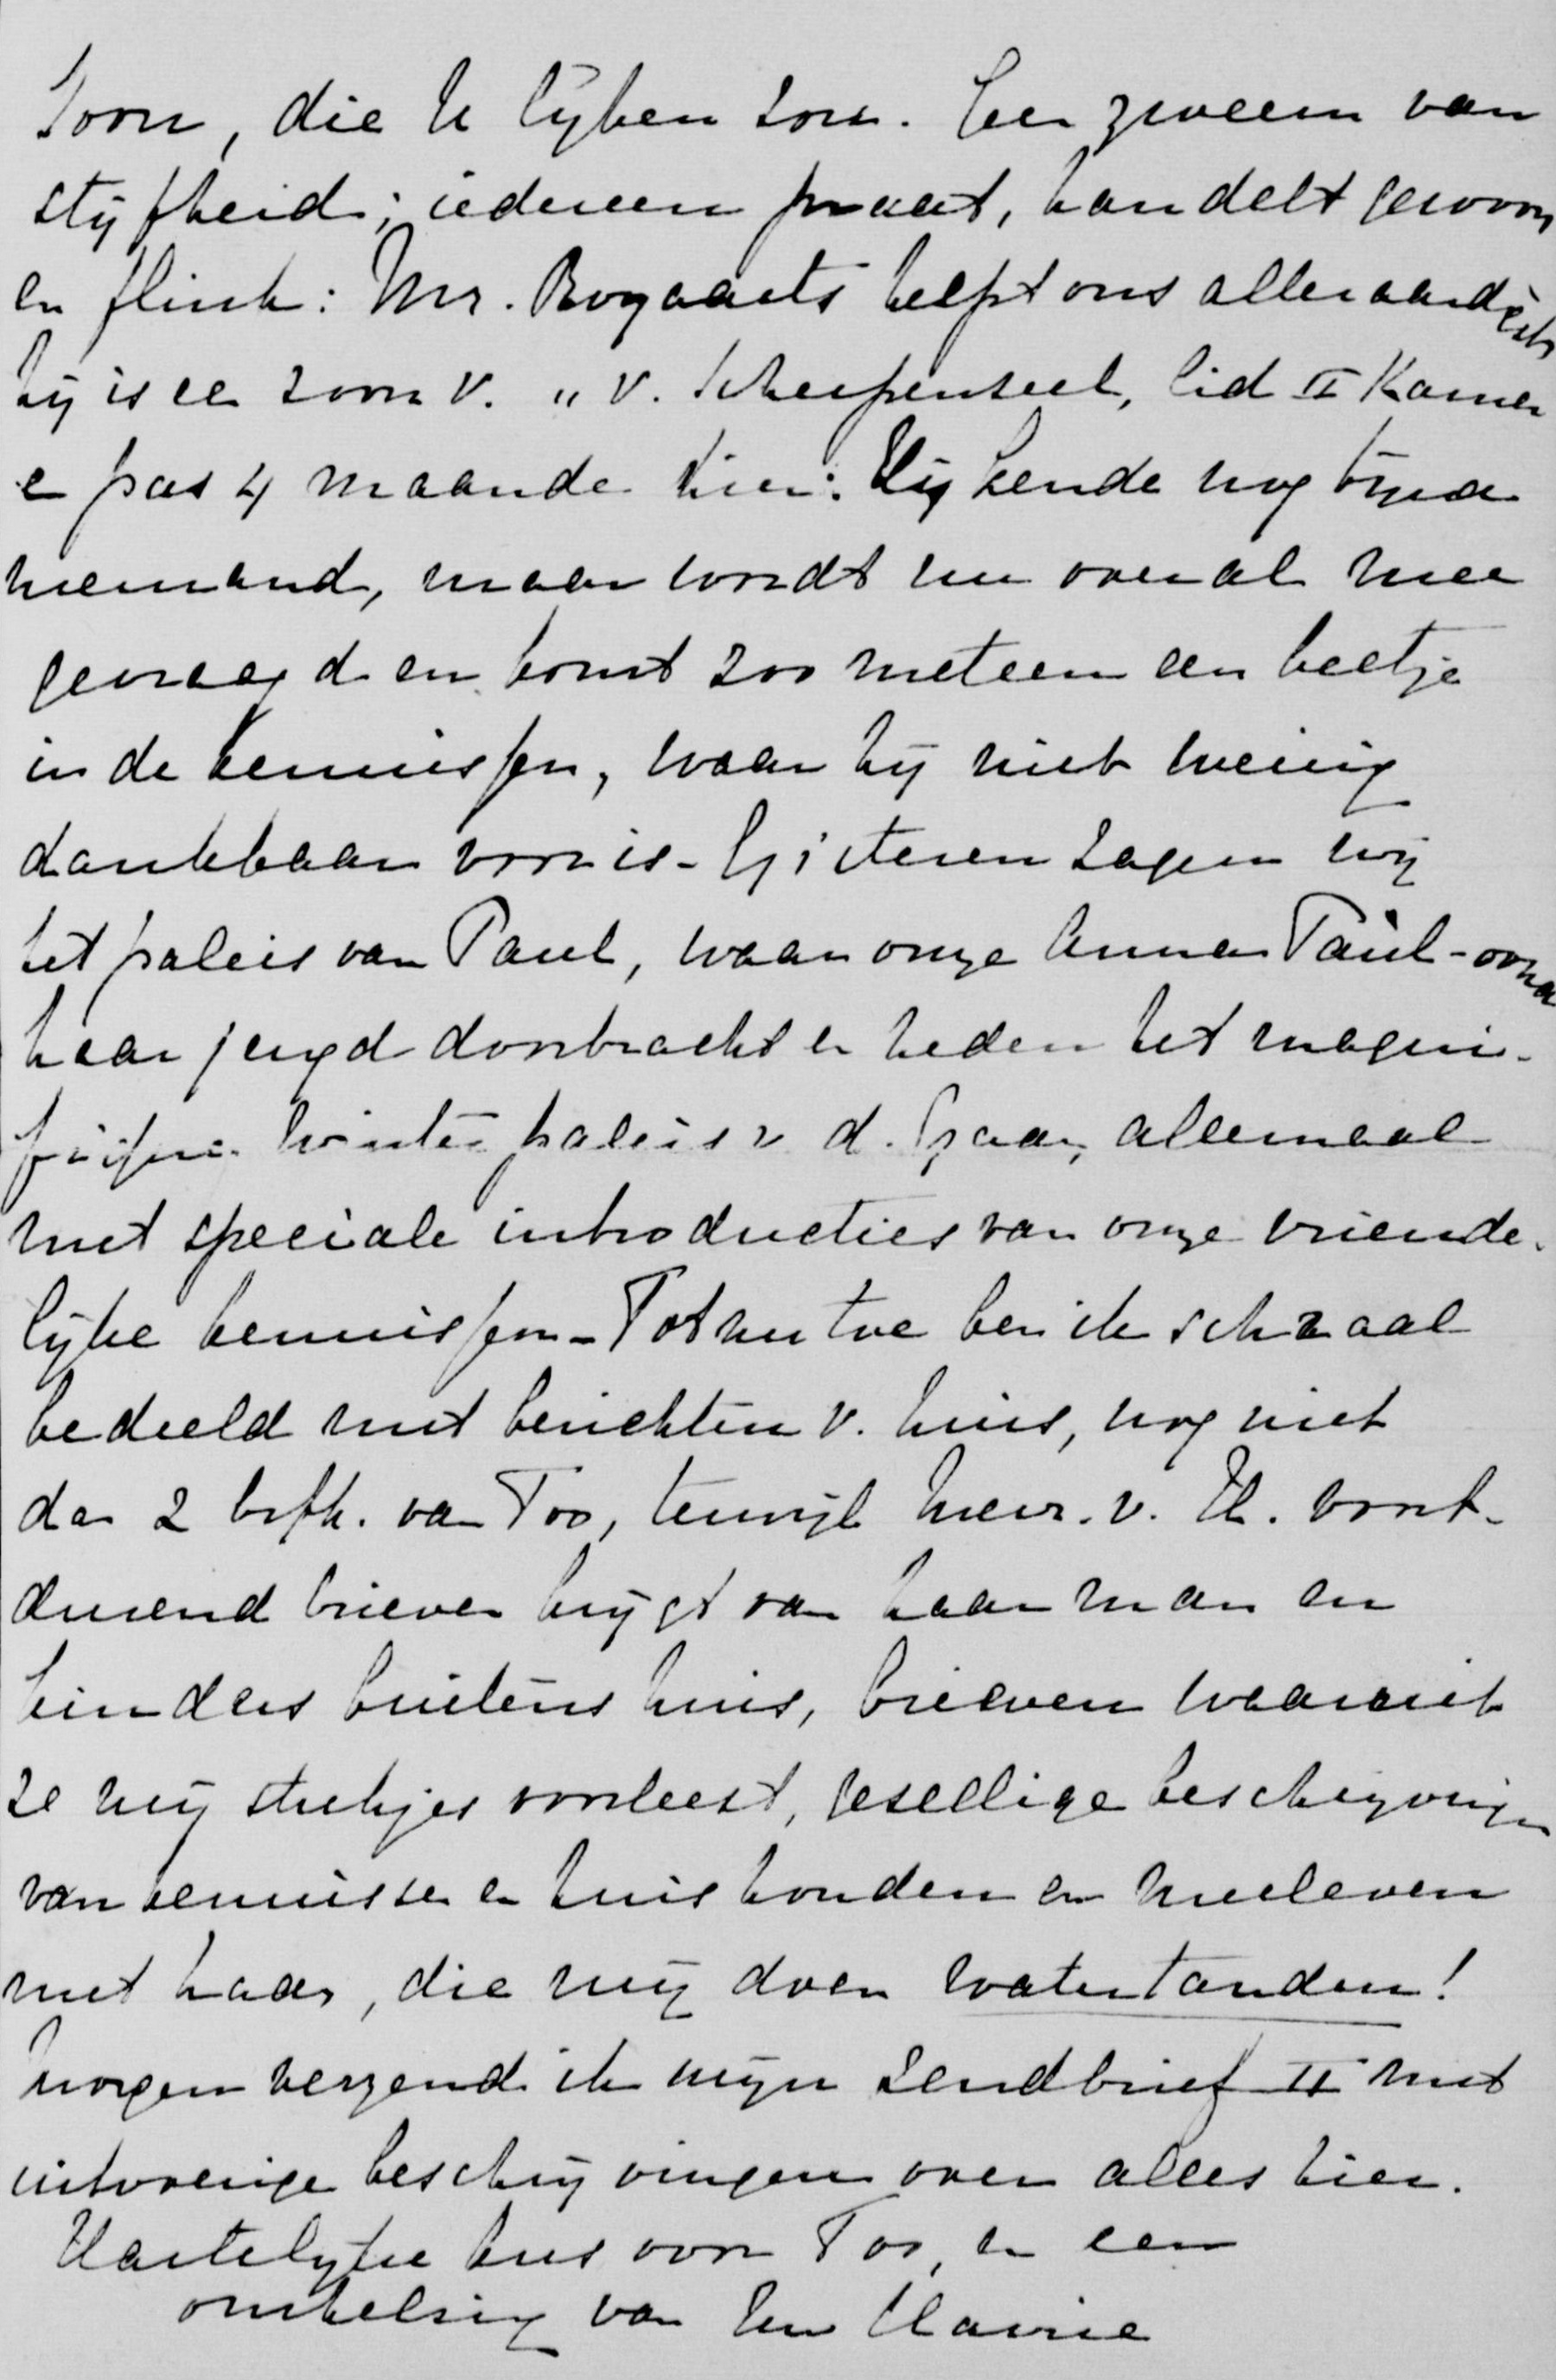 toon, die U lijken zou. Geen zweem van
stijfheid; iedereen praat, handelt gewoon
en flink: Mr. Bogaarts helpt ons alleraardigst
hij is een zoon v. " v. Scherpenzeel, lid II Kamer
e pas 4 maande hier: Hij kende nog bijna
niemand, maar wordt nu overal mee
gevraagd en komt zoo meteen een beetje
in de kennissen, waar hij niet weinig
dankbaar voor is - Gisteren zagen wij
het paleis van Paul, waar onze Anna Paul-owna
haar jeugd doorbracht en heden het magni-
fieke winter paleis v d. Tzaar, allemaal
met speciale introducties van onze vriende-
lijke kennissen - Tot nu toe ben ik schraal
bedeeld met berichten v. huis, nog niet
dan 2 brfk. van Too, terwijl Mevr. v. H. voort-
durend brieven krijgt van haar man en
kinders buitens huis, brieven waaruit
ze mij stukjes voorleest, gezellige beschrijvingen
van kennissen en huishouden en meeleven
met haar, die mij doen watertanden!
Morgen verzend ik mijn zendbrief II met
uitvoerige beschrijvingen over alles hier.
Hartelijke kus voor Too, en een
omhelzing van Uw Marie